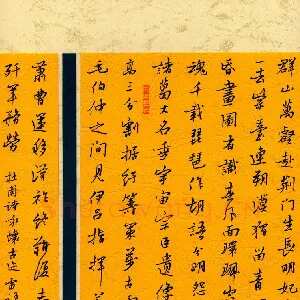 群山萬壑赴荊門生長明妃
一去紫臺連朔漠獨留青
昏畫圖省識春風面環珮空
魂千載琵琶作胡語分明怨
諸葛大名垂宇宙宗臣遺像
高三分割據紆籌策萬古
毛伯仲之間見伊呂指揮若
蕭曹運移漢祚終難復志
殲軍務勞 杜甫詩詠懷古迹